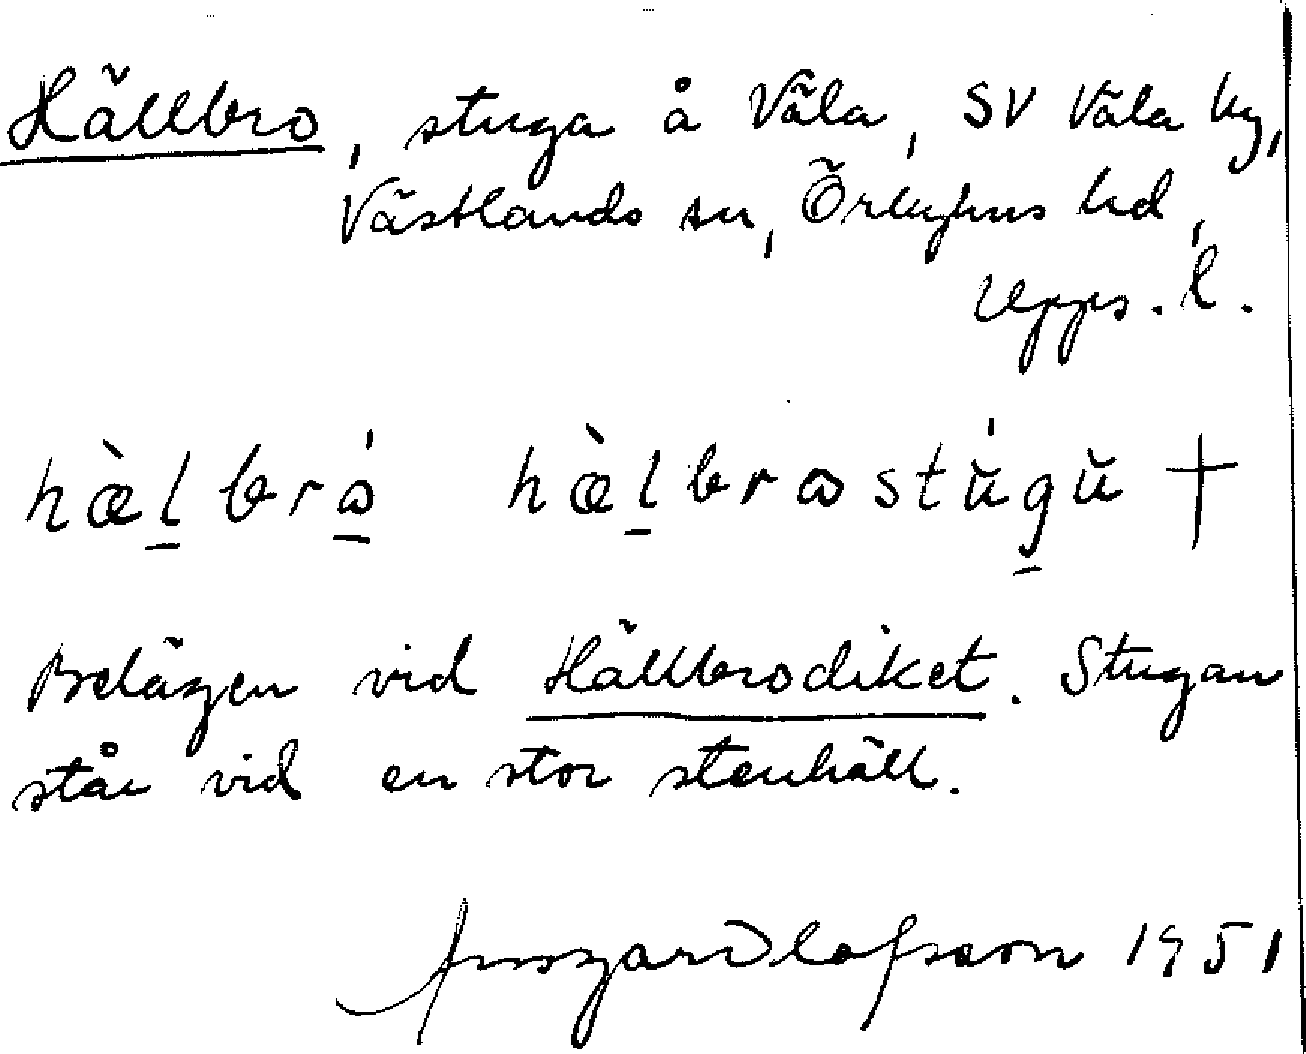 Hällbro, stuga å Väla, SV Väla by,
Västlands sn, Örbyhus hd,
Upps. l.
hæ̀l̠brǻ̠ hæ̀l̠bråstŭ́g̠ŭ †
Belägen vid Hällbrodiket. Stugan
står vid en stor stenhäll.
Ansgar Olofsson 1951